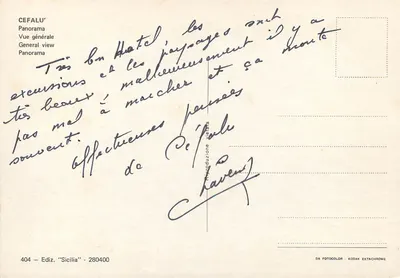 CEFALU'
Panorama
Vue générale
General view
Panorama
Très bn Hotel, les
excursions et les paysages sont
très beaux, malheureusement il y a
pas mal à marcher et ça monte
souvent.
affectueuses pensées
de Céfalu
404 — Ediz. "Sicilia" - 280400